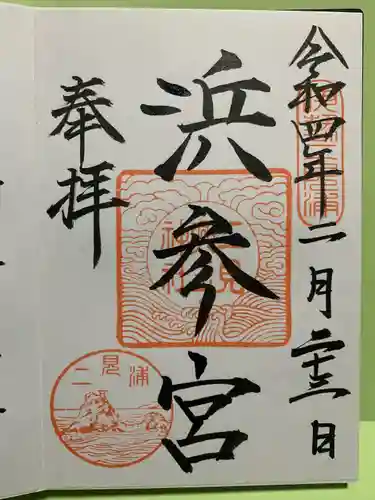 令和四年二月二十三日
浜参宮
奉拝
二見
神社
二見浦